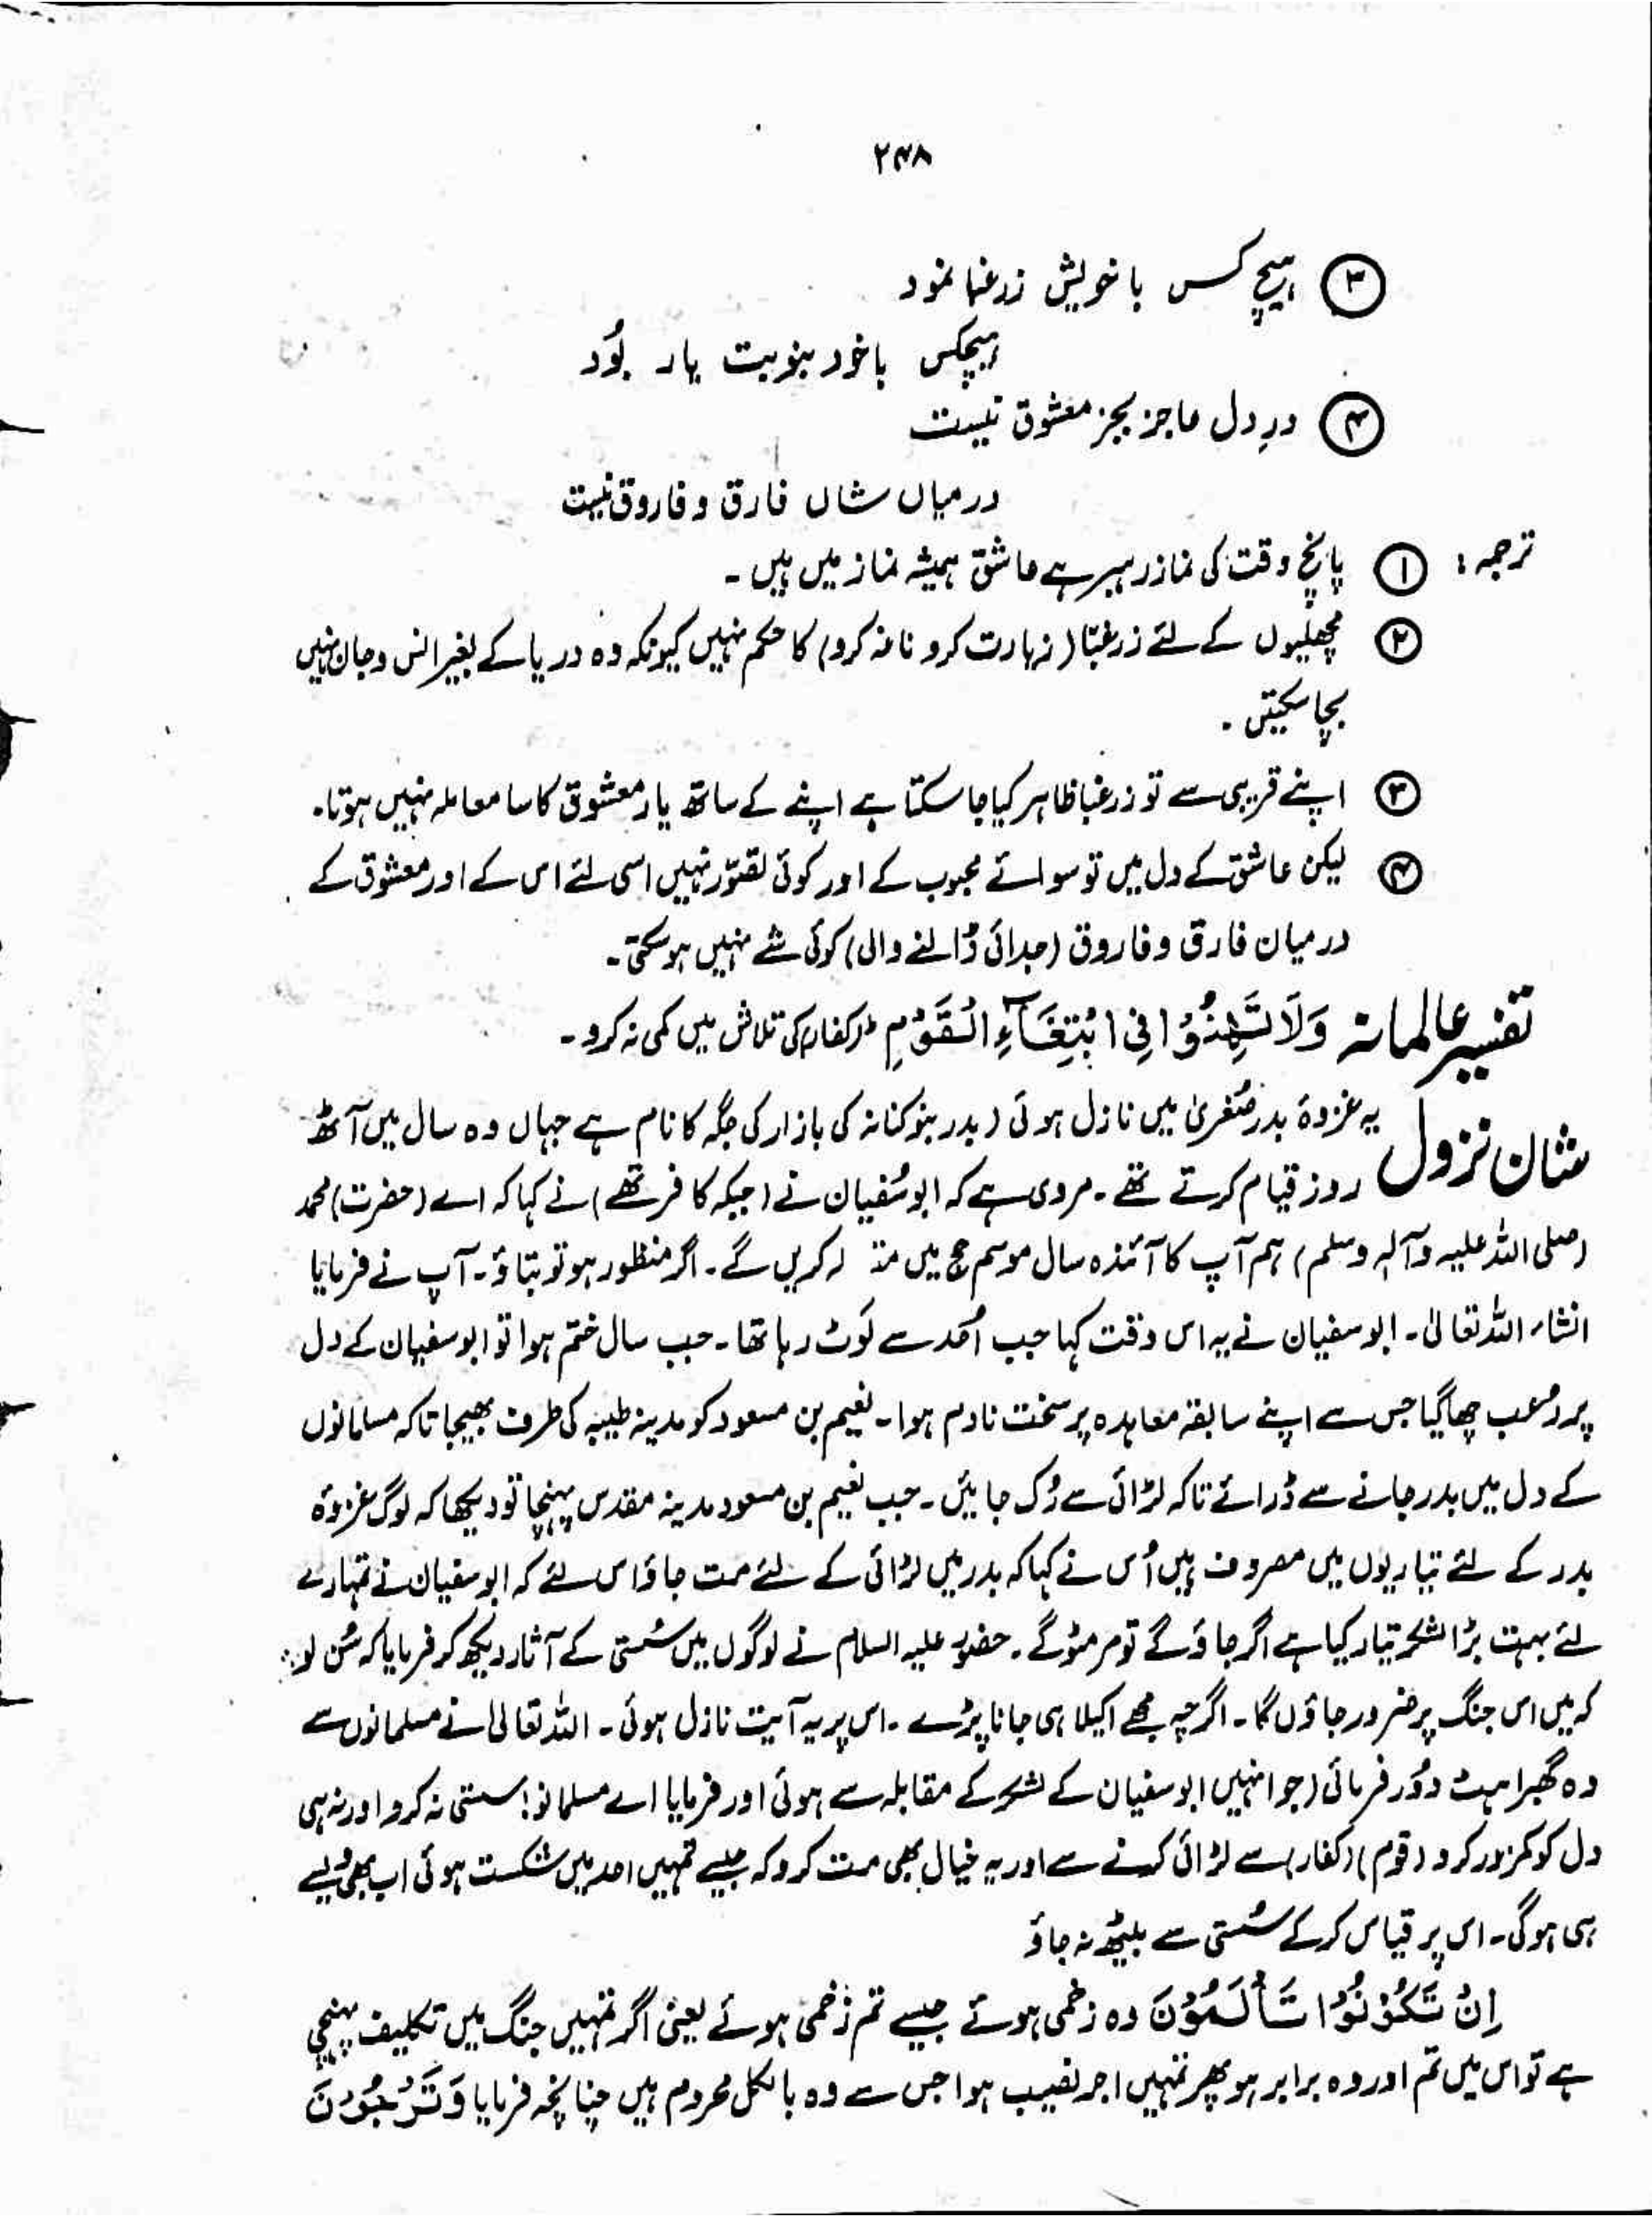 ۲۴۸
③ ہیچ کس با خویش زرغبا نمود
ہیچکس باخود بنوبت یار بُود
④ در دل عاجز بجز معشوق نیست
درمیاں شاں فارق و فاروق نیست
ترجمہ : ① پانچ وقت کی نماز رہبر ہے عاشق ہمیشہ نماز میں ہیں ۔
② مچھلیوں کے لئے زرغبّا (زیارت کرو ناغہ کرو) کا حکم نہیں کیونکہ وہ دریا کے بغیر انس و جان نہیں
بچا سکتیں ۔
③ اپنے قریبی سے تو زرغبا ظاہر کیا جا سکتا ہے اپنے کے ساتھ یار معشوق کا سا معاملہ نہیں ہوتا۔
④ لیکن عاشق کے دل میں تو سوائے محبوب کے اور کوئی تصوّر نہیں اسی لئے اس کے اور معشوق کے
درمیان فارق و فاروق (جدائی ڈالنے والی) کوئی شے نہیں ہو سکتی۔
تفسیر عالمانہ وَلَا تَهِنُوْا فِی ابْتِغَآءِ الْقَوْمِ ط کفار کی تلاش میں کمی نہ کرو ۔
شان نزول یہ غزوۂ بدر صُغریٰ میں نازل ہوئی (بدر بنو کنانہ کی بازار کی جگہ کا نام ہے جہاں وہ سال میں آٹھ
روز قیام کرتے تھے ۔ مروی ہے کہ ابو سُفیان نے (جبکہ کافر تھے) نے کہا کہ اے (حضرت) محمد
(صلی اللہ علیہ وآلہٖ وسلم) ہم آپ کا آئندہ سال موسم حج میں کریں گے۔ اگر منظور ہو تو بتاؤ۔ آپ نے فرمایا
انشاء اللہ تعالیٰ ۔ ابو سفیان نے یہ اس وقت کہا جب اُحد سے لَوٹ رہا تھا ۔ جب سال ختم ہوا تو ابو سفیان کے دل
پر رُعب چھا گیا جس سے اپنے سابقہ معاہدہ پر سخت نادم ہوا ۔ نعیم بن مسعود کو مدینہ طیبہ کی طرف بھیجا تاکہ مسلمانوں
کے دل میں بدر جانے سے ڈرائے تاکہ لڑائی سے رُک جائیں ۔ جب نعیم بن مسعود مدینہ مقدس پہنچا تو دیکھا کہ لوگ غزوۂ
بدر کے لئے تیاریوں میں مصروف ہیں اُس نے کہا کہ بدر میں لڑائی کے لئے مت جاؤ اس لئے کہ ابو سفیان نے تمہارے
لئے بہت بڑا لشکر تیار کیا ہے اگر جاؤ گے تو مر مٹو گے ۔ حضور علیہ السلام نے لوگوں میں سُستی کے آثار دیکھ کر فرمایا کہ سُن لو
کہ میں اس جنگ پر ضرور جاؤں گا ۔ اگرچہ مجھے اکیلا ہی جانا پڑے ۔ اس پر یہ آیت نازل ہوئی ۔ اللہ تعالیٰ نے مسلمانوں سے
وہ گھبراہٹ دُور فرمائی (جو انہیں ابو سفیان کے لشکر کے مقابلہ سے ہوئی اور فرمایا اے مسلمانو! سستی نہ کرو اور نہ ہی
دل کو کمزور کرو (قوم) (کفار) سے لڑائی کرنے سے اور یہ خیال بھی مت کرو کہ جیسے تمہیں احد میں شکست ہوئی اب بھی ویسے
ہی ہوگی۔ اس پر قیاس کر کے سُستی سے بیٹھ نہ جاؤ
اِنْ تَكُوْنُوْا تَأْلَمُوْنَ وہ زخمی ہوئے جیسے تم زخمی ہوئے یعنی اگر تمہیں جنگ میں تکلیف پہنچی
ہے تو اس میں تم اور وہ برابر ہو پھر تمہیں اجر نصیب ہوا جس سے وہ بالکل محروم ہیں چنانچہ فرمایا وَتَرْجُوْنَ